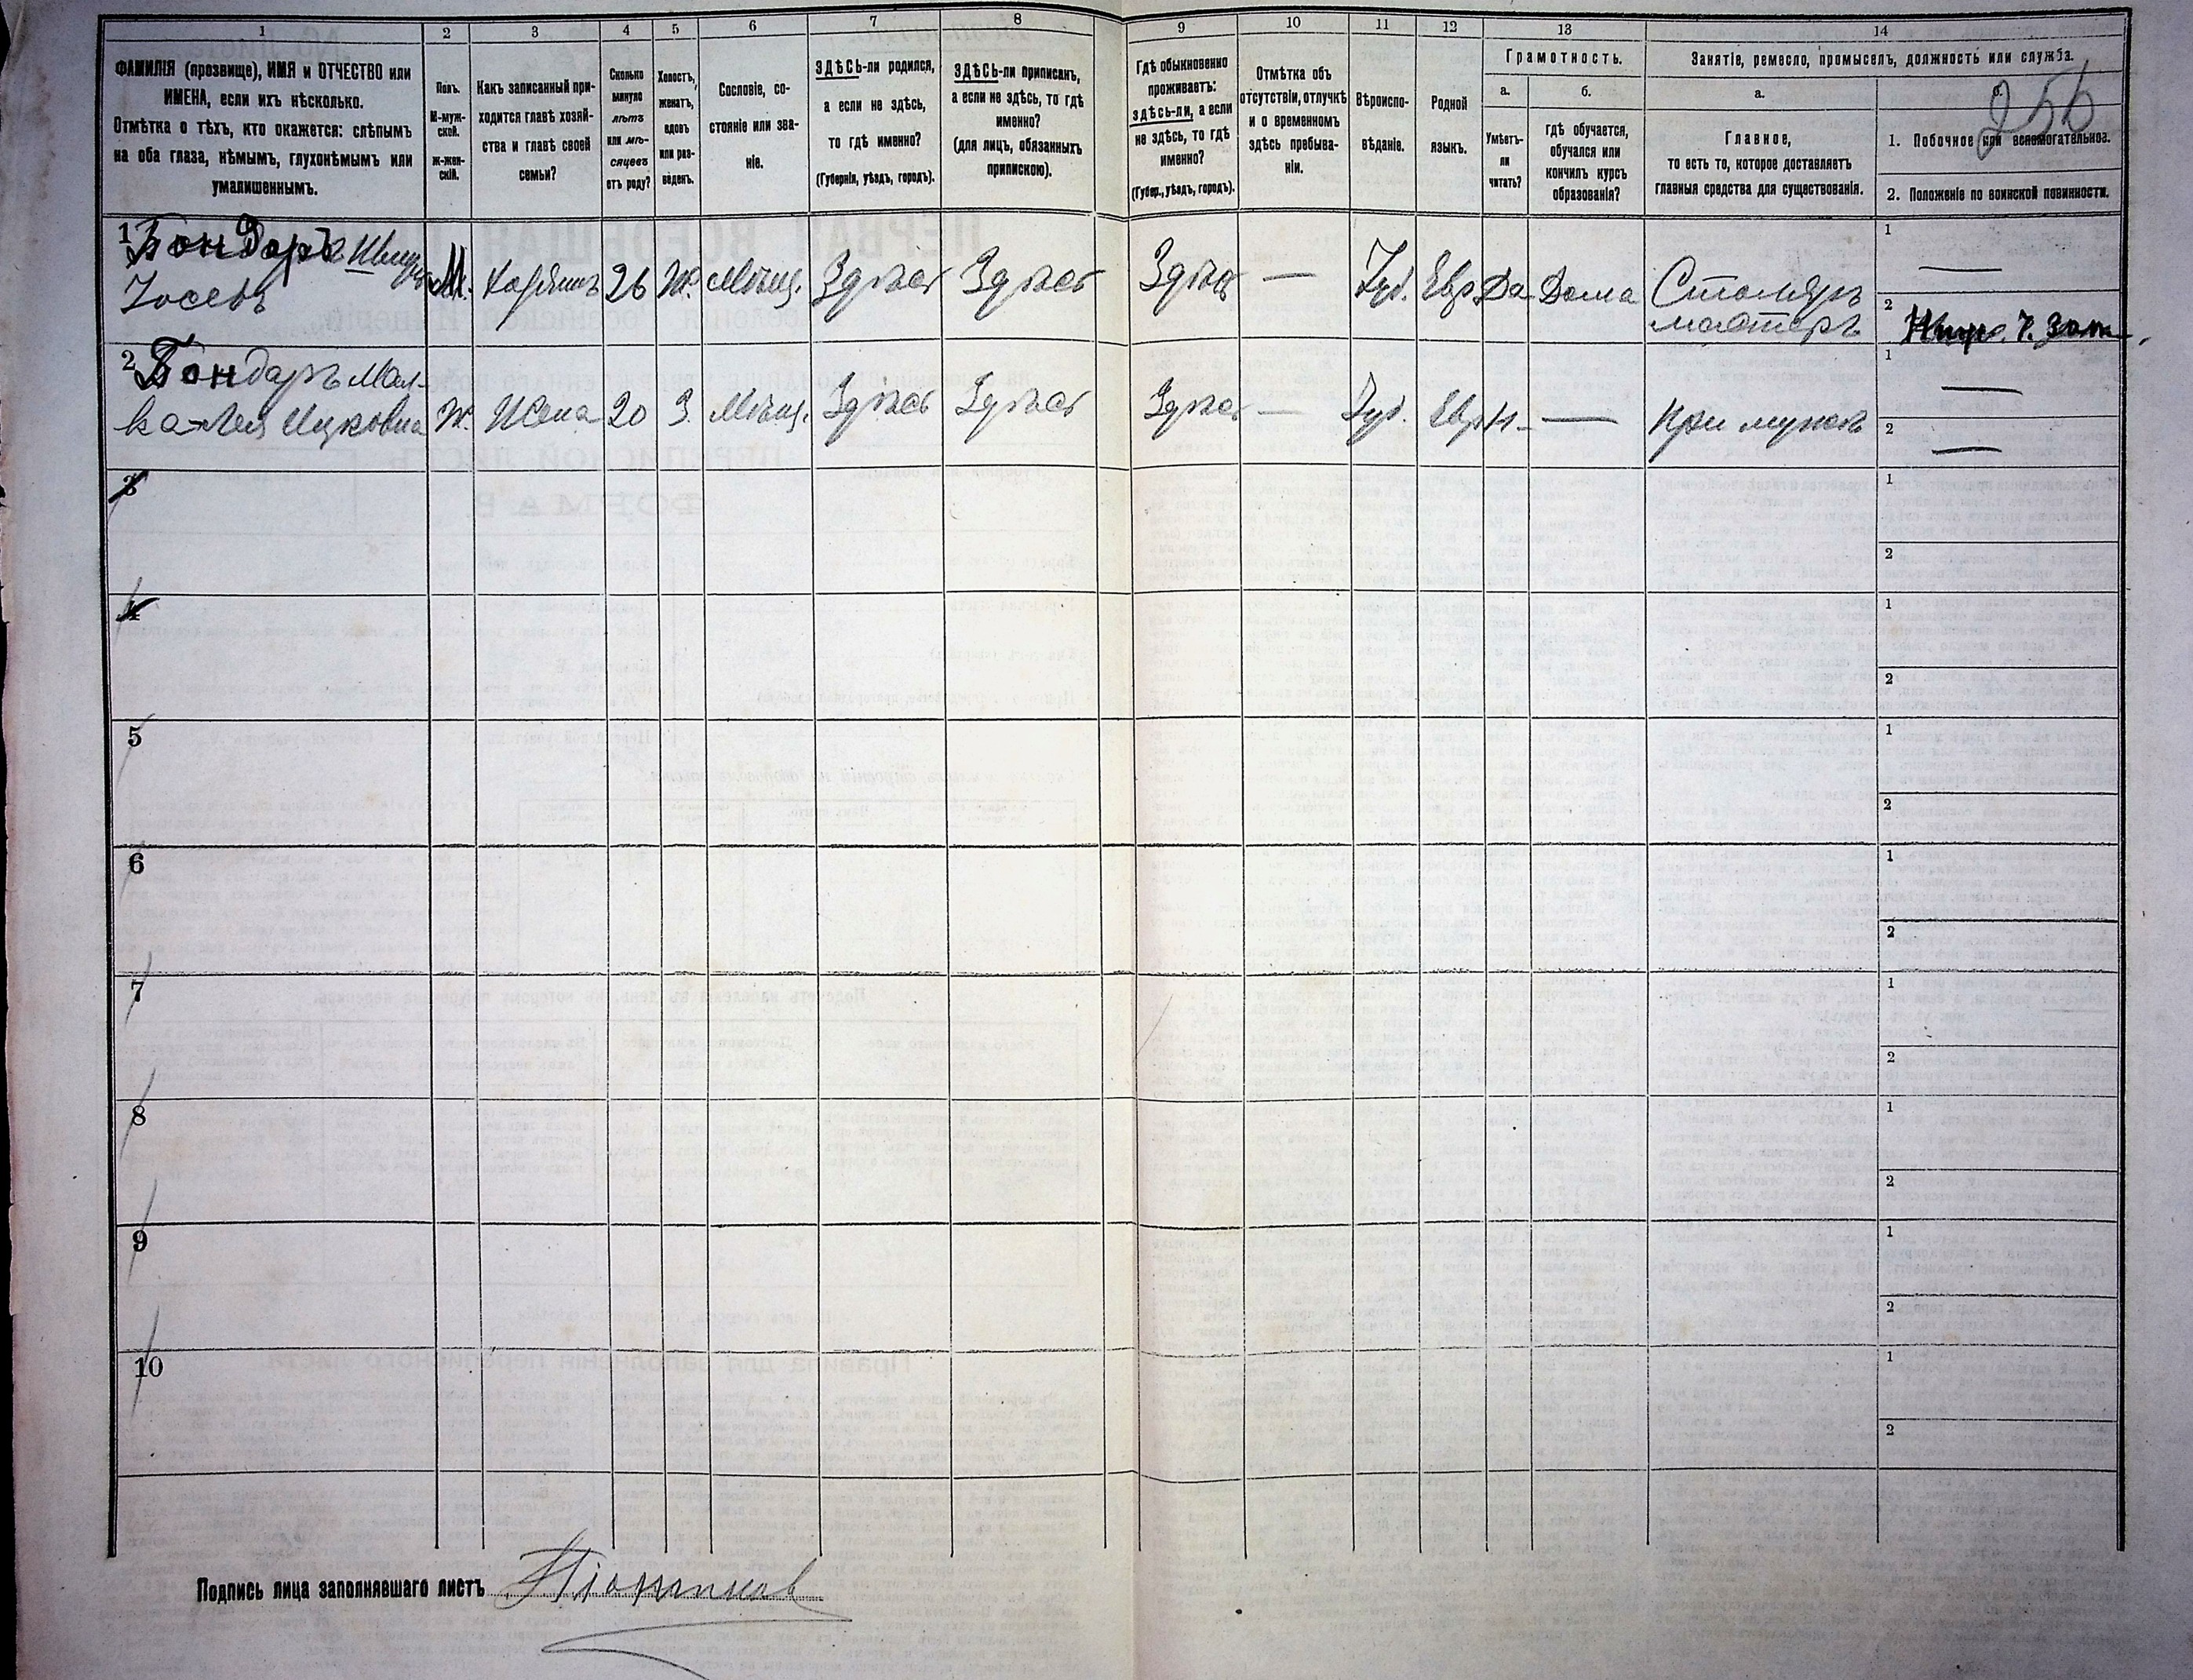 1 2 3 4 5 6 7 8 9 10 11 12 13 14
ФАМИЛІЯ (прозвище), ИМЯ и ОТЧЕСТВО или
ИМЕНА, если ихъ нѣсколько.
Отмѣтка о тѣхъ, кто окажется: слѣпымъ
на оба глаза, нѣмымъ, глухонѣмымъ или
умалишеннымъ.
Полъ.
М-муж-
ской.
ж-жен-
скій.
Какъ записанный при-
ходится главѣ хозяй-
ства и главѣ своей
семьи?
Сколько
минуло
лѣтъ
или мѣ-
сяцевъ
отъ роду?
Холостъ,
женатъ,
вдовъ
или раз-
веденъ.
Сословіе, со-
стояніе или зва-
ніе.
ЗДѢСЬ-ли родился,
а если не здѣсь,
то гдѣ именно?
(Губернія, уѣздъ, городъ).
ЗДѢСЬ-ли приписанъ,
а если не здѣсь, то гдѣ
именно?
(для лицъ, обязанныхъ
припискою).
Гдѣ обыкновенно
проживаетъ:
здѣсь-ли, а если
не здѣсь, то гдѣ
именно?
(Губер., уѣздъ, городъ).
Отмѣтка объ
отсутствіи, отлучкѣ
и о временномъ
здѣсь пребыва-
ніи.
Вѣроиспо-
вѣданіе.
Родной
языкъ.
Грамотность.
а.
Умѣетъ-
ли
читать?
б.
гдѣ обучается,
обучался или
кончилъ курсъ
образованія?
Занятіе, ремесло, промыселъ, должность или служба.
а.
Главное,
то есть то, которое доставляетъ
главныя средства для существованія.
б.
1. Побочное или вспомогательное.
2. Положеніе по воинской повинности.
1 Бондаръ
Іосевъ
М. 26 Ж. Мѣщ. Здѣсь Здѣсь Здѣсь — Іуд. Евр Да Дома Столяръ
мастеръ
1 —
2
2 Бондаръ Мал-
ка-Лея Ицковна Ж. Жена 20 З. Мѣщ. Здѣсь Здѣсь Здѣсь — Іуд. Евр Н — При мужѣ
1 —
2 —
3 1
2
4 1
2
5 1
2
6 1
2
7 1
2
8 1
2
9 1
2
10 1
2
Подпись лица заполнявшаго листъ